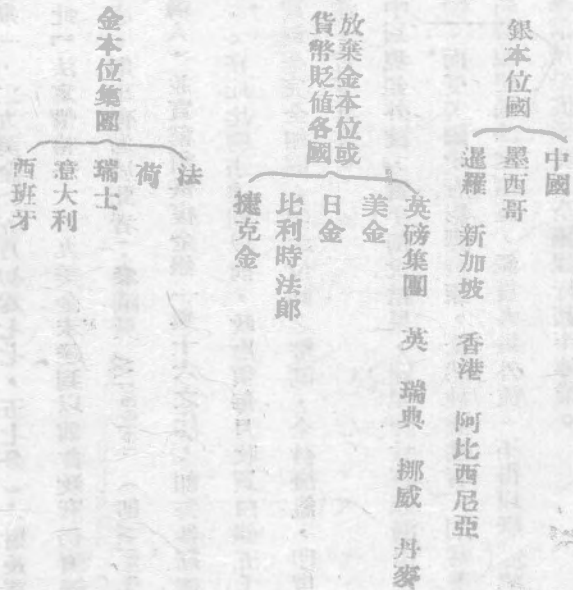 銀本位國
中國
墨西哥
暹羅　新加坡　香港　阿比西尼亞
放棄金本位或
貨幣貶値各國
英磅集團　英　瑞典　挪威　丹麥
美金
日金
比利時法郎
捷克金
金本位集團
法
荷
瑞士
意大利
西班牙